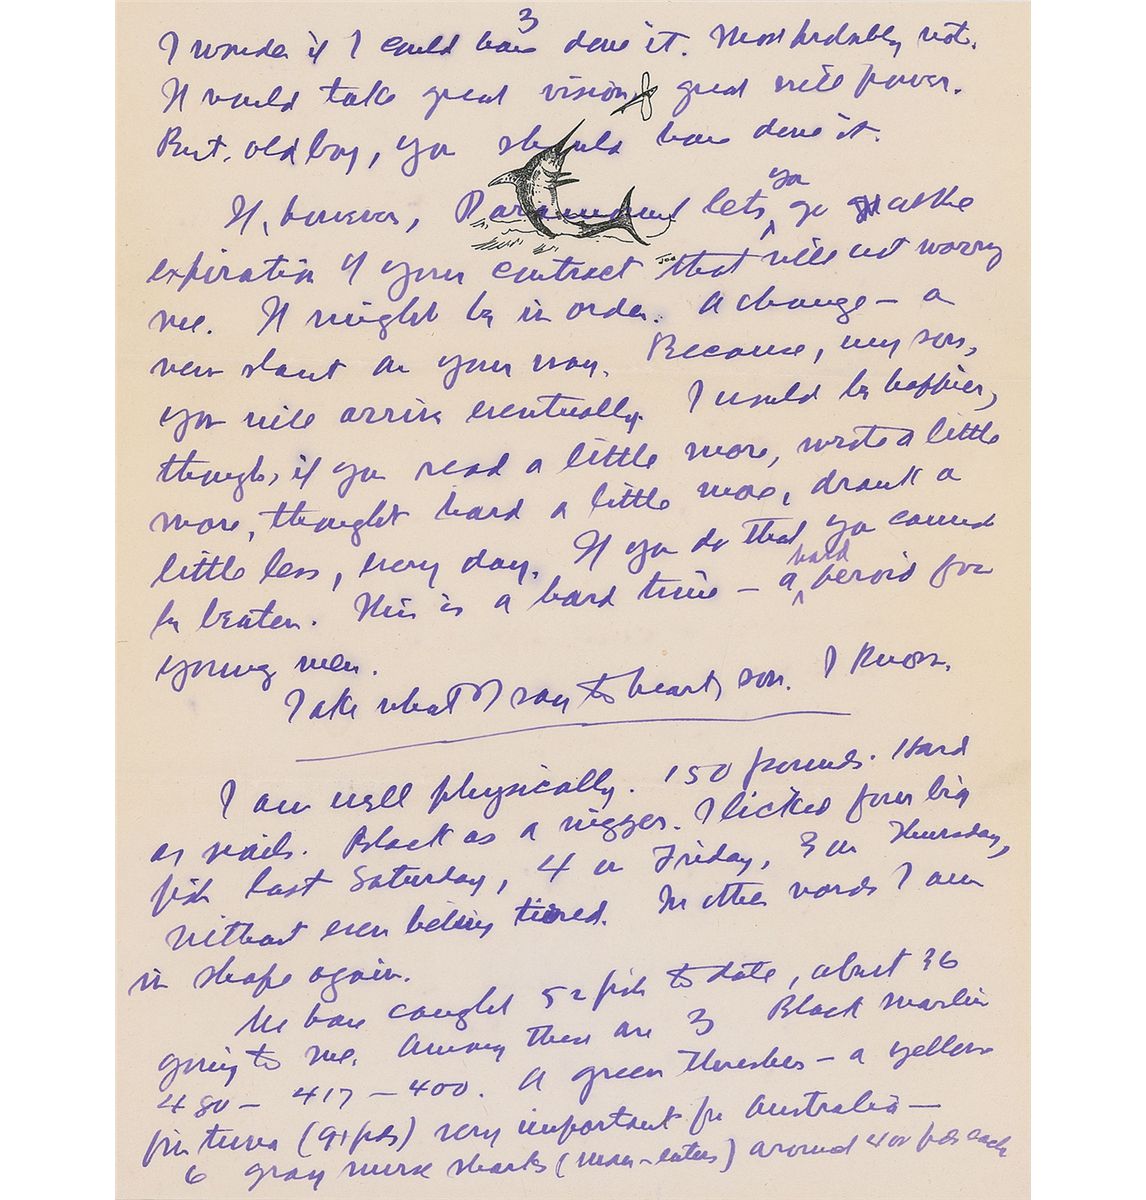 3
I wonder if I could have done it. Most probably not.
It would take great vision & great will power.
But, old boy, you should have done it.
If, however, Paramount lets you go at the
expiration of your contract that will not worry
me. It might be in order. A change — a
new slant on your way. Because, my son,
you will arrive eventually. I would be happier,
though, if you read a little more, wrote a little
more, thought hard a little more, drank a
little less, every day. If you do that you cannot
be beaten. This is a hard time — a hard peroid for
young men.
Take what I say to heart, son. I know.
I am well physically. 150 pounds. Hard
as nails. Black as a nigger. I licked four big
fish last Saturday, 4 on Friday, 3 on Thursday,
without even being tired. In other words I am
in shape again.
We have caught 52 fish to date, about 36
going to me. Among them are 3 Black marlin
480 — 417 — 400. A green Thresher — a yellow
fin tuna (91 pds) very important for Australia —
6 gray nurse sharks (man-eaters) around 400 pds each